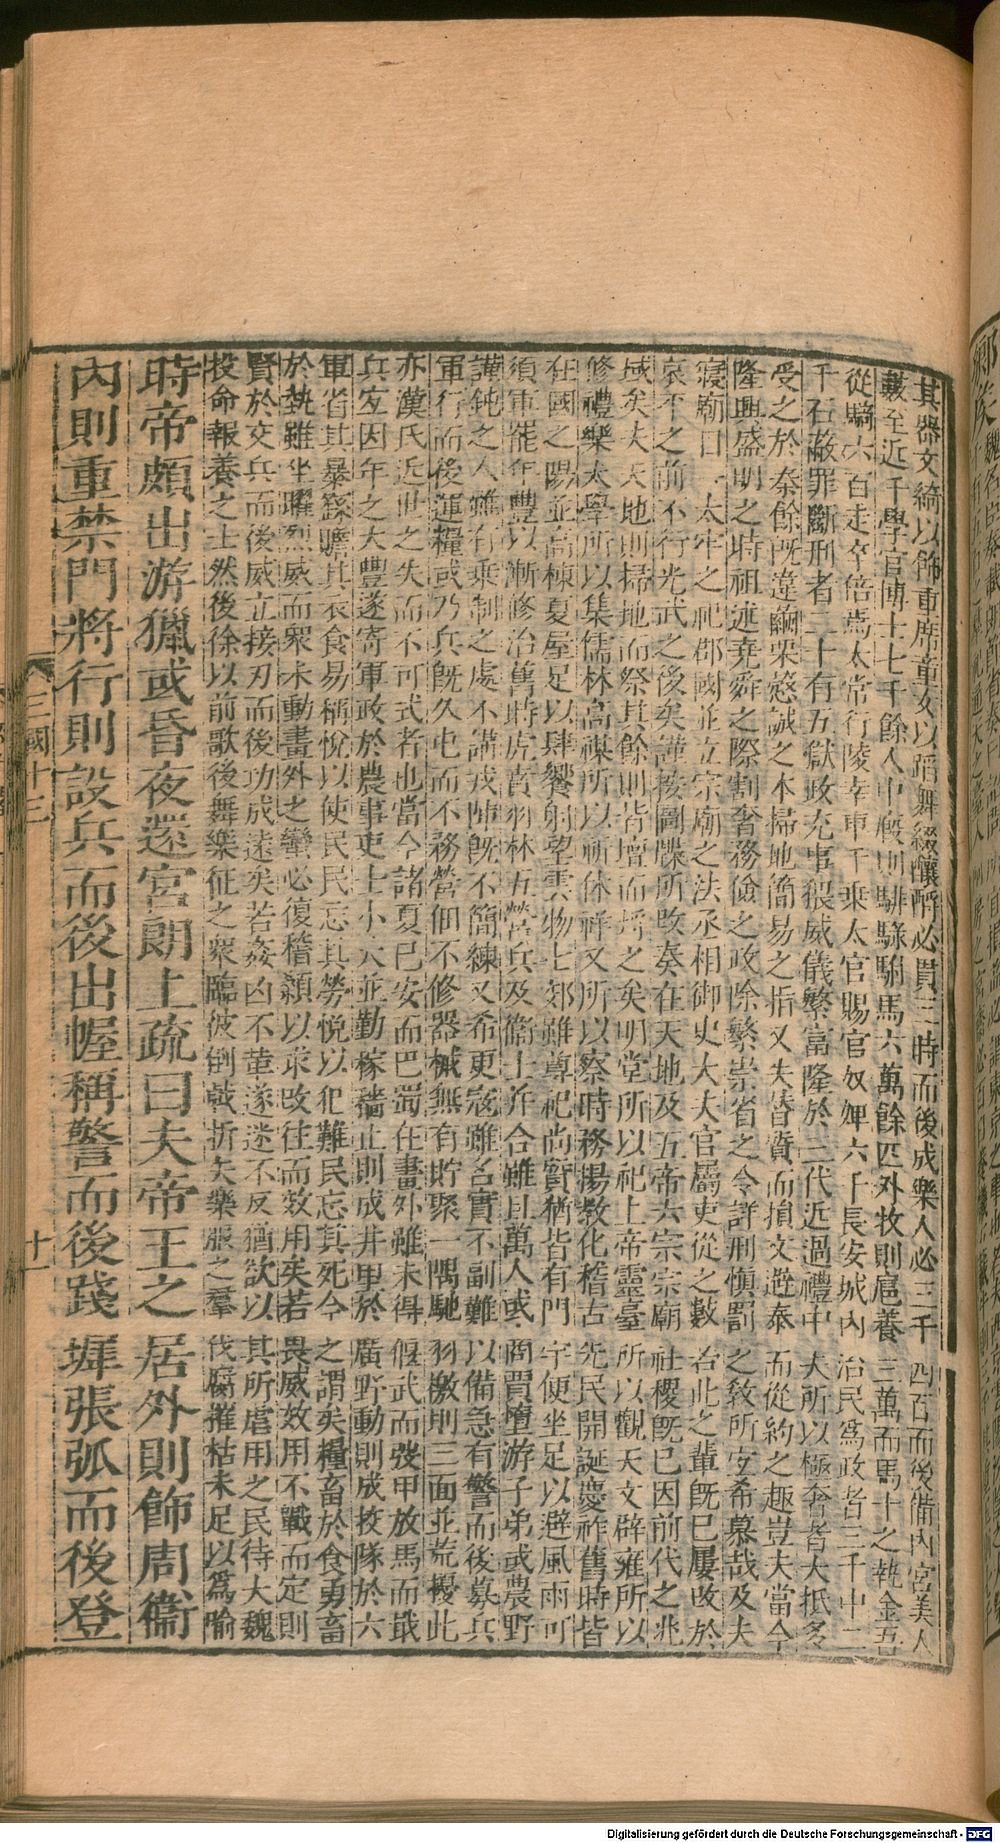 其器文綺以飾重席童女以蹈舞綴釀酎必貫三時而後成樂人必三千四百而後備內宮美人
數至近千學官博士七千餘人中廐則騑騄駙馬六萬餘匹外牧則扈養三萬而馬十之執金吾
從騎六百走卒倍焉太常行陵幸車千乘太官賜官奴婢六千長安城內治民爲政者三千中二
千石蔽罪斷刑者二十有五獄政充事猥威儀繁富隆於三代近過禮中夫所以極奢者大抵多
受之於秦餘旣違繭栗慤誠之本掃地簡易之指又失替質而損文避泰而從約之趣豈夫當今
隆興盛明之時祖述堯舜之際割奢務儉之政除繁崇省之令詳刑愼罰之敎所宜希慕哉及夫
寢廟日一太牢之祀郡國並立宗廟之法丞相御史大夫官屬吏從之數若此之輩旣已屢改於
哀平之前不行光武之後矣謹按圖牒所改奏在天地及五帝六宗宗廟社稷旣已因前代之兆
域矣夫天地則掃地而祭其餘則皆壇而埒之矣明堂所以祀上帝靈臺所以觀天文辟雍所以
修禮樂太學所以集儒林高禖所以祈休祥又所以察時務揚敎化稽古先民開誕慶祚舊時皆
在國之陽並高棟夏屋足以肆饗射望雲物七郊雖尊祀尚質猶皆有門宇便坐足以避風雨可
須軍罷年豐以漸修治舊時虎賁羽林五營兵及衞士并合雖且萬人或商賈惰游子弟或農野
謹鈍之人雖有乘制之處不講戎陣旣不簡練又希更寇雖名實不副難以備急有警而後募兵
軍行而後運糧或乃兵旣久屯而不務營佃不修器械無有貯聚一隅馳羽檄則三面並荒擾此
亦漢氏近世之失而不可式者也當今諸夏已安而巴蜀在畫外雖未得偃武而弢甲放馬而戢
兵宜因年之大豐遂寄軍政於農事吏士小大並勤稼穡止則成井里於廣野動則成校隊於六
軍省其暴繇贍其衣食易稱悅以使民民忘其勞悅以犯難民忘其死今之謂矣糧畜於食勇畜
於勢雖坐曜烈威而眾未動畫外之蠻必復稽顙以求改往而效用矣若畏威效用不戰而定則
賢於交兵而後威立接刃而後功成遠矣若姦凶不革遂迷不反猶欲以其所虐用之民待大魏
投命報養之士然後徐以前歌後舞樂征之眾臨彼倒戟折矢樂服之羣伐腐摧枯未足以爲喻
時帝頗出游獵或昏夜還宮朗上疏曰夫帝王之居外則飾周衞
內則重禁門將行則設兵而後出幄稱警而後踐墀張弧而後登
三國十三
十一
Digitalisierung gefördert durch die Deutsche Forschungsgemeinschaft - DFG